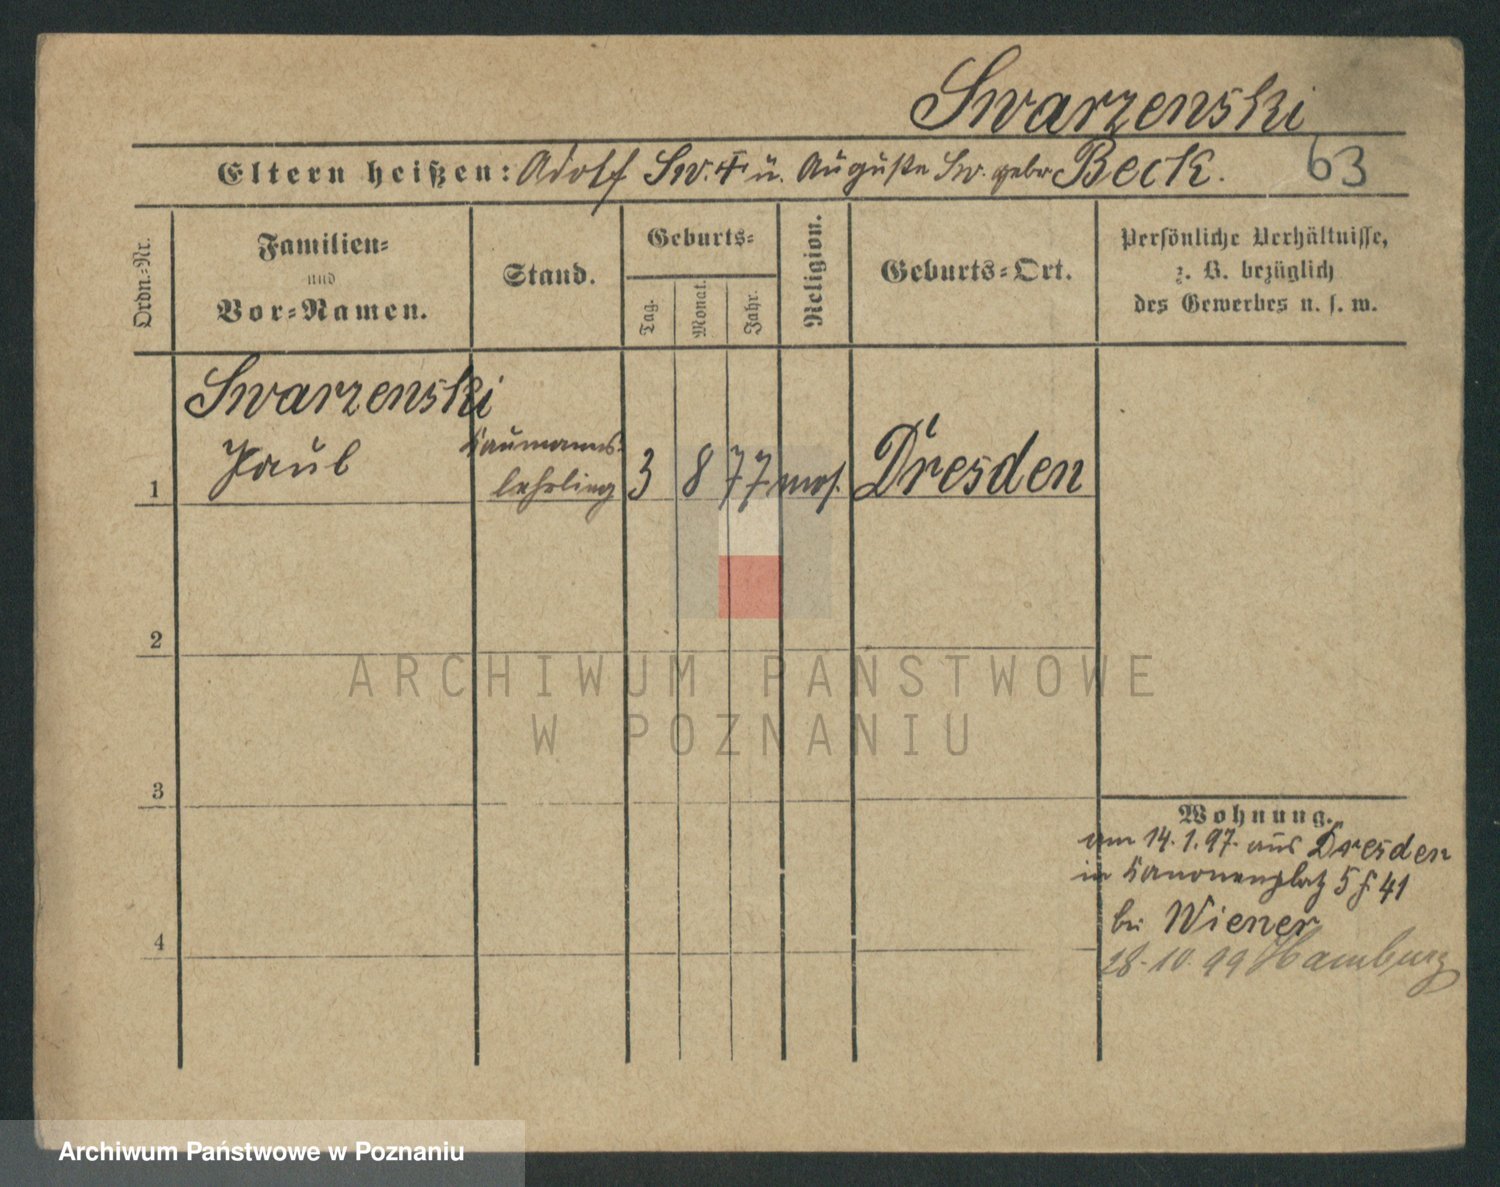 Swarzenski
Eltern heißen: Adolf Sw. † u. Auguste Sw. gebr Beck. 63
Ordn.-Nr.
Familien-
und
Vor-Namen.
Stand.
Geburts-
Tag.
Monat.
Jahr.
Religion.
Geburts-Ort.
Persönliche Verhältnisse,
z. B. bezüglich
des Gewerbes u. s. w.
Swarzenski
1 Paul Kaufmanns- 3 8 77 mos. Dresden
lehrling
2
ARCHIWUM PAŃSTWOWE
W POZNANIU
3
Wohnung.
am 14.1.97. aus Dresden
in Kanonenplatz 5 41
bei Wiener
4
28.10.99 Hamburg
Archiwum Państwowe w Poznaniu